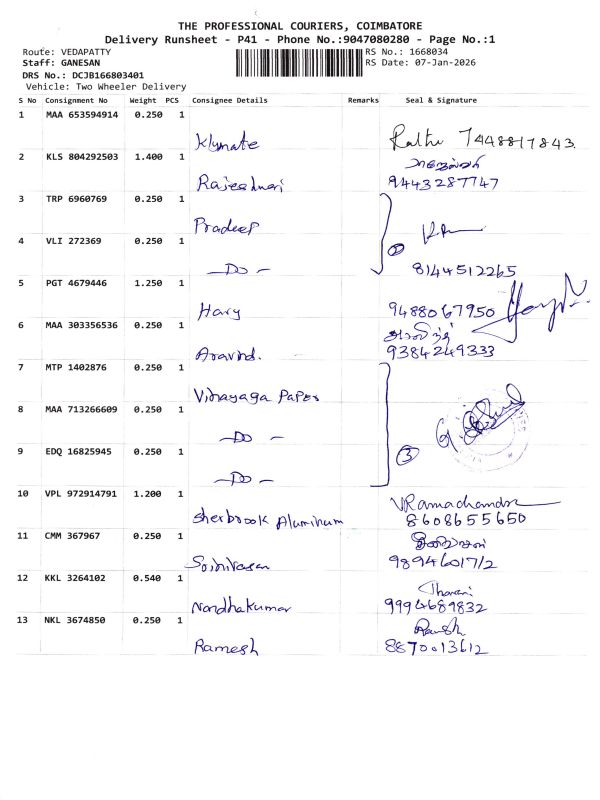 THE PROFESSIONAL COURIERS, COIMBATORE
Delivery Runsheet - P41 - Phone No.:9047080280 - Page No.:1
Route: VEDAPATTY
RS No.: 1668034
Staff: GANESAN
RS Date: 07-Jan-2026
DRS No.: DCJB166803401
Vehicle: Two Wheeler Delivery
S No Consignment No Weight PCS Consignee Details Remarks Seal & Signature
1 MAA 653594914 0.250 1
Klymate 7448817843
2 KLS 804292503 1.400 1
Rajeshwari 9443287747
3 TRP 6960769 0.250 1
Pradeep
4 VLI 272369 0.250 1
— Do — 2 8144512265
5 PGT 4679446 1.250 1
Hary 9488067950
6 MAA 303356536 0.250 1
அரவிந்த்
Aravind. 9384249333
7 MTP 1402876 0.250 1
Vinayaga Paper
8 MAA 713266609 0.250 1
— Do —
9 EDQ 16825945 0.250 1
— Do — 3
10 VPL 972914791 1.200 1
VRamachandra
Sherbrook Aluminum 8608655650
11 CMM 367967 0.250 1
Srinivasan 9894601712
12 KKL 3264102 0.540 1
Tharani
Nandhakumar 9994689832
13 NKL 3674850 0.250 1
Ramesh
Ramesh 8870013612